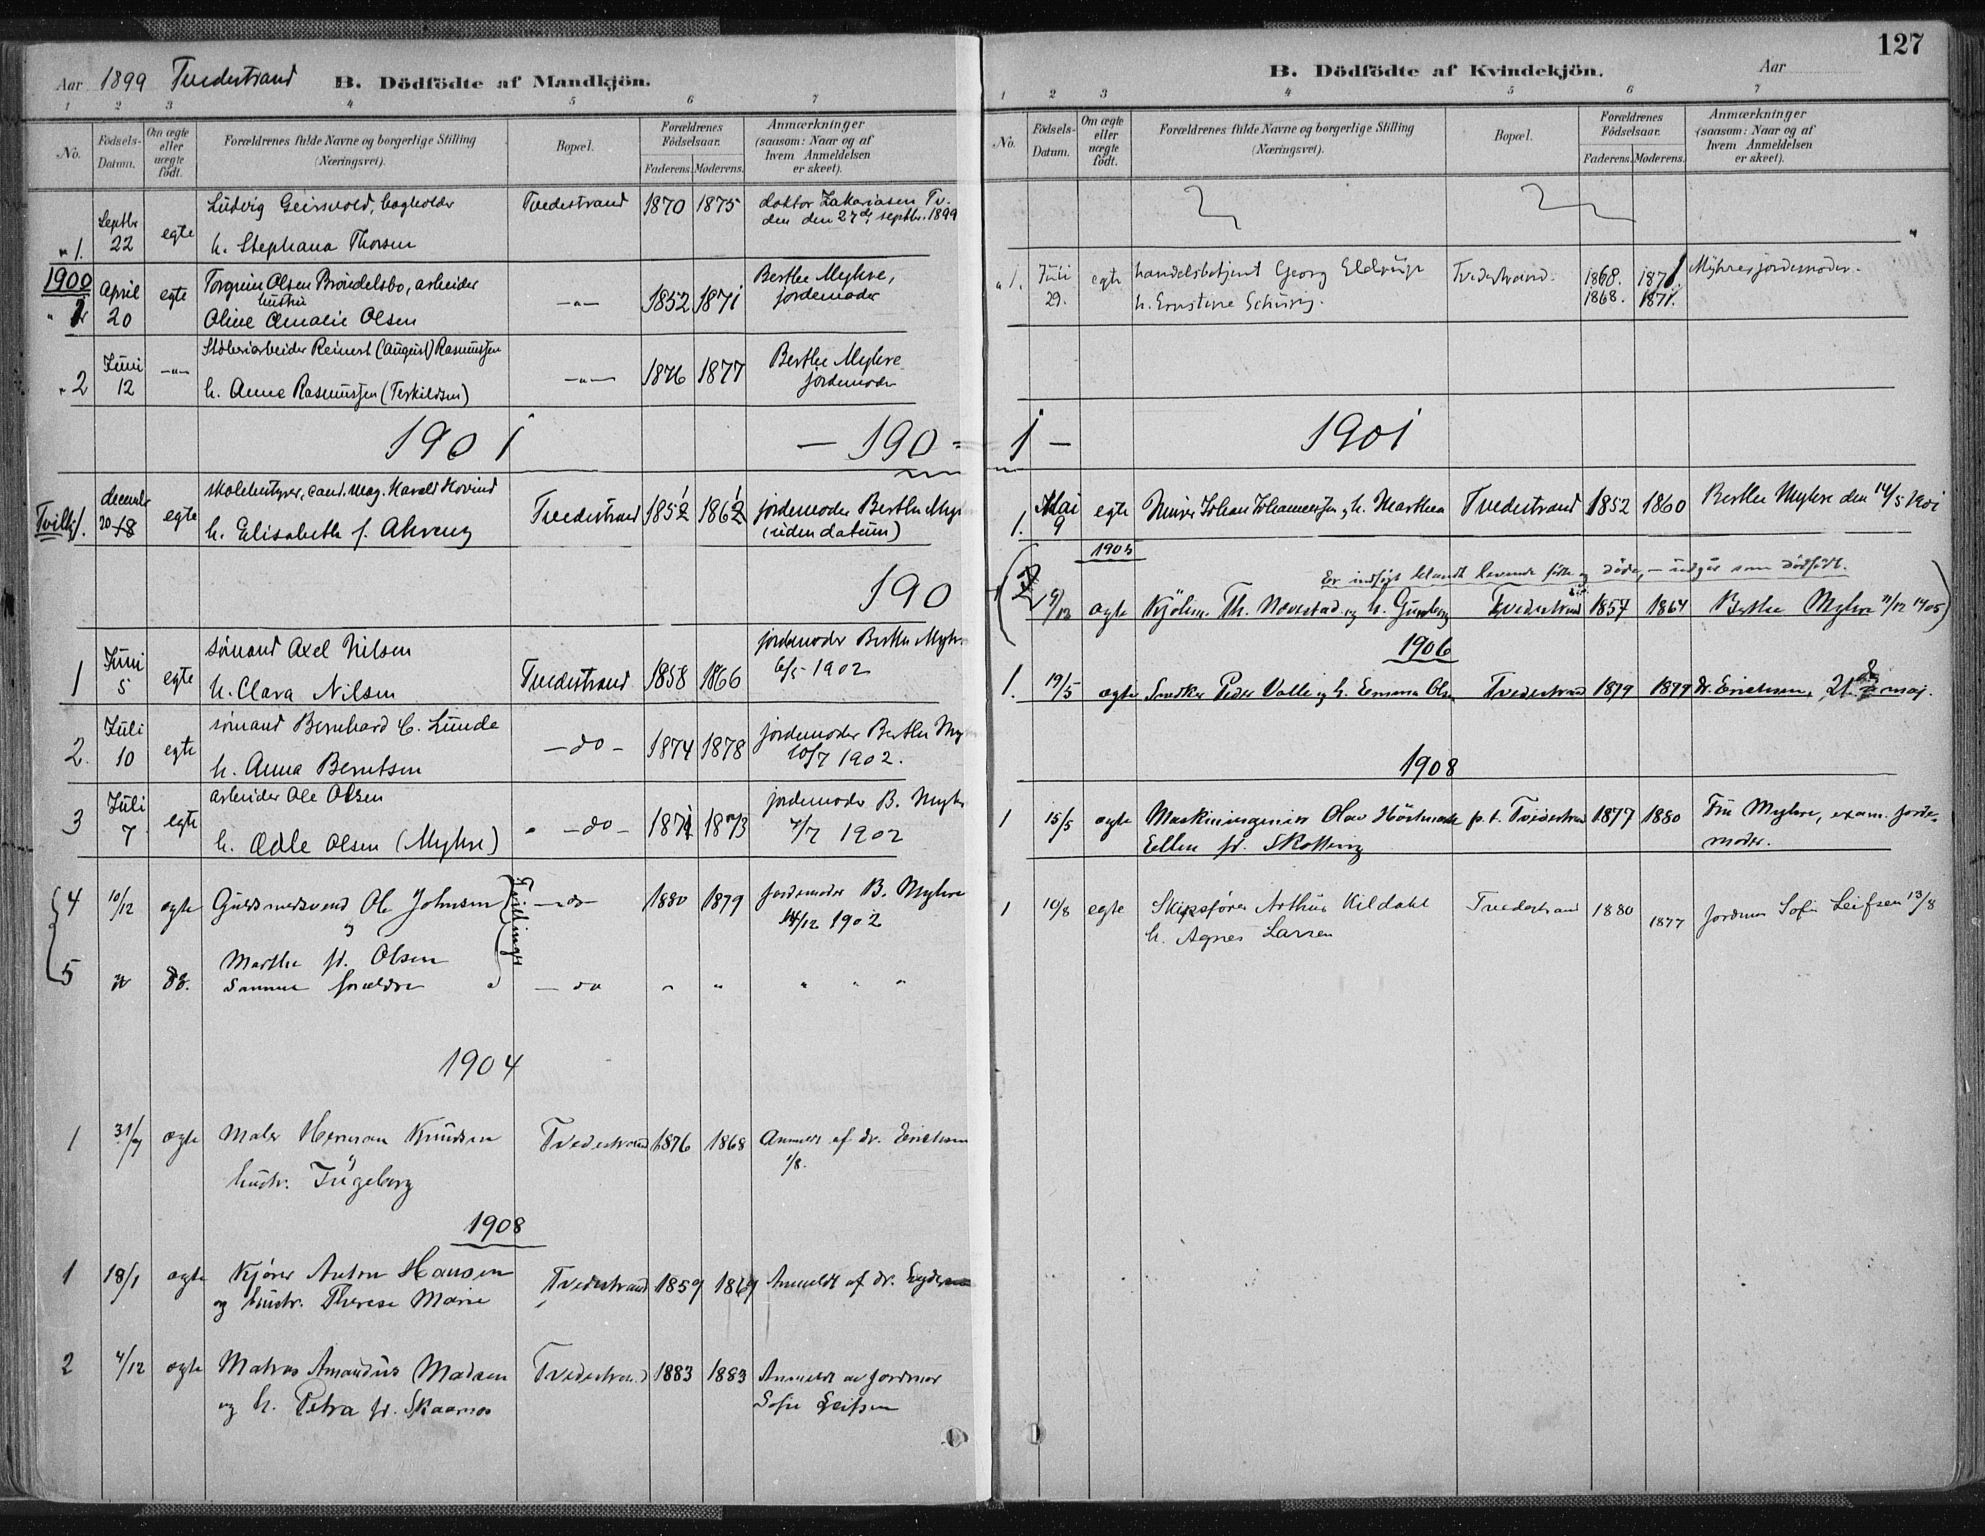 127
Aar 1899 Tvedestrand B. Dödfödte af Mandkjön.
1 2 3 4 5 6 7
No. Födsels-Datum. Om ægte eller uægte födt. Forældrenes fulde Navne og borgerlige Stilling (Næringsvei). Bopæl. Forældrenes Födselsaar. Faderens. Moderens. Anmærkninger (saasom: Naar og af hvem Anmeldelsen er skeet).
" 1. Septbr 22 egte Ludvig Geirsvold, bogholder Tvedestrand 1870 1875 doktor Zakariasen Tv.
h. Stephana Thorsen den 27de septbr. 1899
1900
" 1 April 20 egte Torgrim Olsen Bröndelsbo, arbeider —"— 1852 1871 Berthe Myhre,
hustru jordemoder
Oline Amalie Olsen
" 2 Juni 12 —"— Reinert (August) Rasmussen —"— 1876 1877 Berthe Myhre
h. Anne Rasmussen (Terkildsen) jordemoder
1901 — 190
Tvill. 1. decembr 20 18 egte skolebestyrer, cand. mag. Harald Hovind Tvedestrand 1852 1862 jordemoder Berthe Myhre
h. Elisabeth f. (uden datum)
190
1 Juni 5 egte sömand Axel Nilsen Tvedestrand 1858 1866 jordemoder Berthe Myhre
h. Clara Nilsen 6/5 1902
2. Juli 10 egte sömand Bernhard C. Lunde —do— 1874 1878 jordemoder Berthe
h. Anna Berntsen 10/7 1902.
3 Juli 7 egte arbeider Ole Olsen —do— 1871 1873 jordemoder B. Myhre
h. Adle Olsen (Myhre) 7/7 1902
4 10/12 egte Guldsmedsvend Ole Johnsen Tvillinger —do— 1880 1879 Jordemoder B. Myhre
og 1902
Marthe fd. Olsen
5 " do. Samme forældre — do " " " " "
1904
1 31/7 ægte Maler Herman Knudsen Tvedestrand 1876 1868 Anmeldt af dr. Erichsen
hustr. Ingeborg 1/8.
1908
1 18/1 ægte Kjører Anton Hansen Tvedestrand 1859 1869 Anmeldt af dr.
og hustr. Therese Marie
2 4/12 ægte Matros Amandus Madsen Tvedestrand 1883 1883 Anmeldt av Jordmor
og h. Petra fd. Skaarnes Sofie Leifsen
B. Dödfödte af Kvindekjön. Aar
1 2 3 4 5 6 7
No. Födsels-Datum. Om ægte eller uægte födt. Forældrenes fulde Navne og borgerlige Stilling (Næringsvei). Bopæl. Forældrenes Födselsaar. Faderens. Moderens. Anmærkninger (saasom: Naar og af hvem Anmeldelsen er skeet).
" 1. Juli 29. egte handelsbetjent Georg Tvedestrand. 1868. 1871. Myhre jordemoder.
h. Ernstine 1868. 1871.
1 — 1901
1. Mai 9 egte Murer Johan Johannessen og h. Marthea Tvedestrand 1852 1860 Berthe Myhre den 14/5 1901
1905
Er indført blandt levende fødte og døde, — udgår som dødfødt.
9/12 ægte Th. Nævestad og h. Gunborg Tvedestrand 1857 1864 Berthe Myhre 11/12 1905
1906
1. 19/5 ægte Snedker Peder Valle og h. Emma Olsen Tvedestrand 1879 1879 dr. Erichsen, 21de maj.
1908
1 15/5 ægte Maskiningeniør Olav p. t. Tvedestrand 1877 1880 Fru Myhre, exam. jorde-
Ellen fd. moder.
1 10/8 egte Skipsfører Arthur Kildahl Tvedestrand 1880 1877 Jordmor Sofie Leifsen 13/8
h. Agnes Larsen